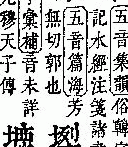 五音集韻俗
記水經注箋諸
五音篇海芳
無切郭也
彙補音未詳
穆天子傳